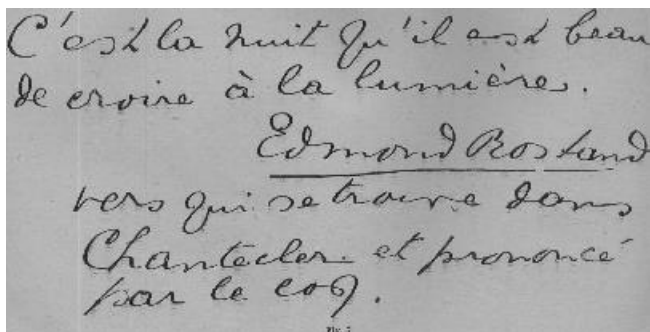 C'est la nuit qu'il est beau
de croire à la lumière.
Edmond Rostand
vers qui se trouve dans
Chantecler et prononcé
par le coq.